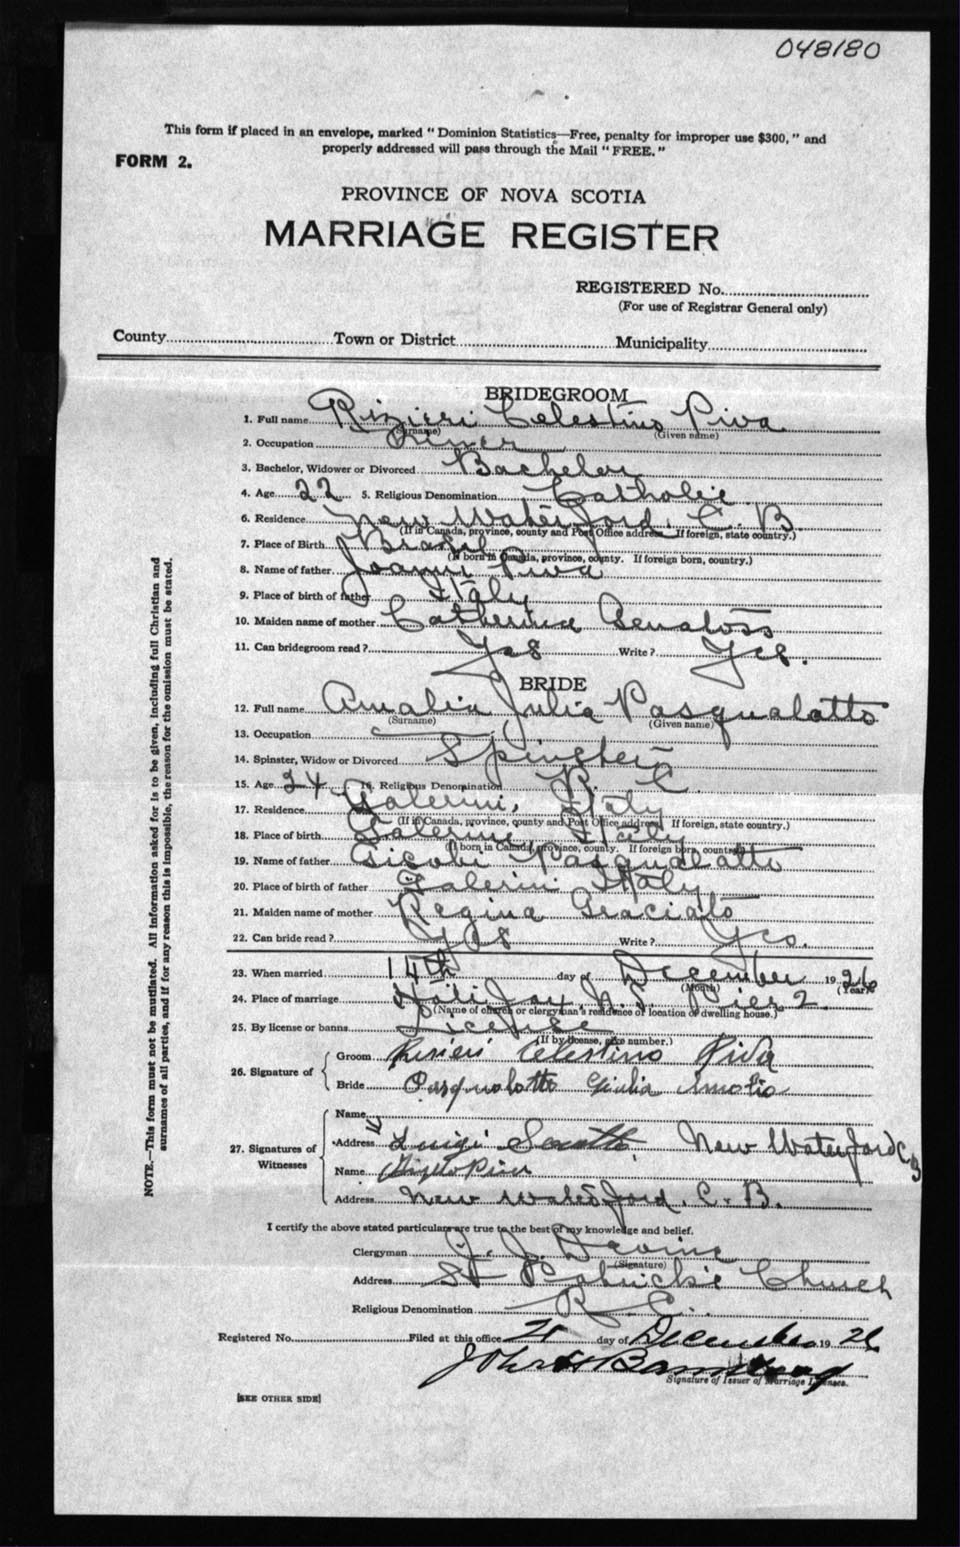 048180
This form if placed in an envelope, marked "Dominion Statistics—Free, penalty for improper use $300," and
properly addressed will pass through the Mail "FREE."
FORM 2.
PROVINCE OF NOVA SCOTIA
MARRIAGE REGISTER
REGISTERED No.
(For use of Registrar General only)
County Town or District Municipality
BRIDEGROOM
1. Full name Rizieri Celestino Piva
(Surname) (Given name)
2. Occupation Miner
3. Bachelor, Widower or Divorced Bachelor
4. Age 22 5. Religious Denomination Catholic
6. Residence New Waterford. C. B.
(If in Canada, province, county and Post Office address. If foreign, state country.)
7. Place of Birth Brazil
(If born in Canada, province, county. If foreign born, country.)
8. Name of father Joanni Piva
9. Place of birth of father Italy
10. Maiden name of mother Catherina
11. Can bridegroom read? Yes Write? Yes.
BRIDE
12. Full name Amalia Julia Pasqualatto
(Surname) (Given name)
13. Occupation
14. Spinster, Widow or Divorced Spinster
15. Age 24 16. Religious Denomination R. C
17. Residence Salerini, Italy
(If in Canada, province, county and Post Office address. If foreign, state country.)
18. Place of birth Salerini Italy
(If born in Canada, province, county. If foreign born, country.)
19. Name of father Pasqualatto
20. Place of birth of father Salerini Italy
21. Maiden name of mother Regina
22. Can bride read? Yes Write? Yes.
23. When married 14th day of December 1926
(Month) (Year)
24. Place of marriage Halifax, N.S. Pier 2.
(Name of church or clergyman's residence or location of dwelling house.)
25. By license or banns License
(If by license, give number.)
26. Signature of
Groom Rizieri Celestino Piva
Bride Pasqualotto Giulia Amalia
27. Signatures of Witnesses
Name
Address Luigi New Waterford C B
Name Piva
Address New Waterford. C. B.
I certify the above stated particulars are true to the best of my knowledge and belief.
Clergyman J. J. Devine
(Signature)
Address St Patrick's Church
Religious Denomination R. C.
Registered No. Filed at this office 21 day of December 1926
John
Signature of Issuer of Marriage Licenses.
[SEE OTHER SIDE]
NOTE.—This form must not be mutilated. All information asked for is to be given, including full Christian and
surnames of all parties, and if for any reason this is impossible, the reason for the omission must be stated.